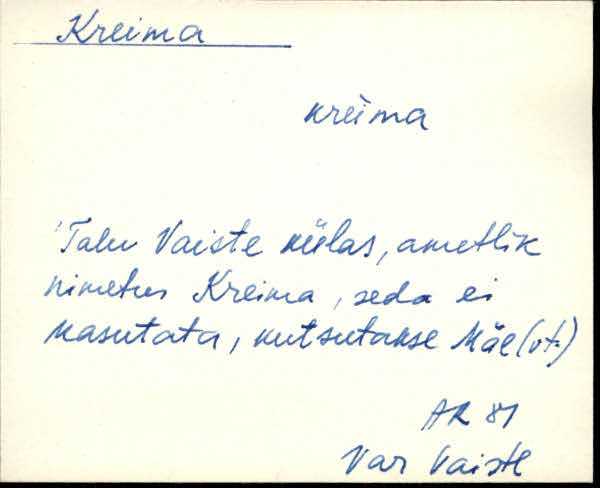 Kreima
krèima
Talu Vaiste külas, ametlik
nimetus Kreima, seda ei
kasutata, kutsutakse Mäe (vt.)
AR 81
Var Vaiste